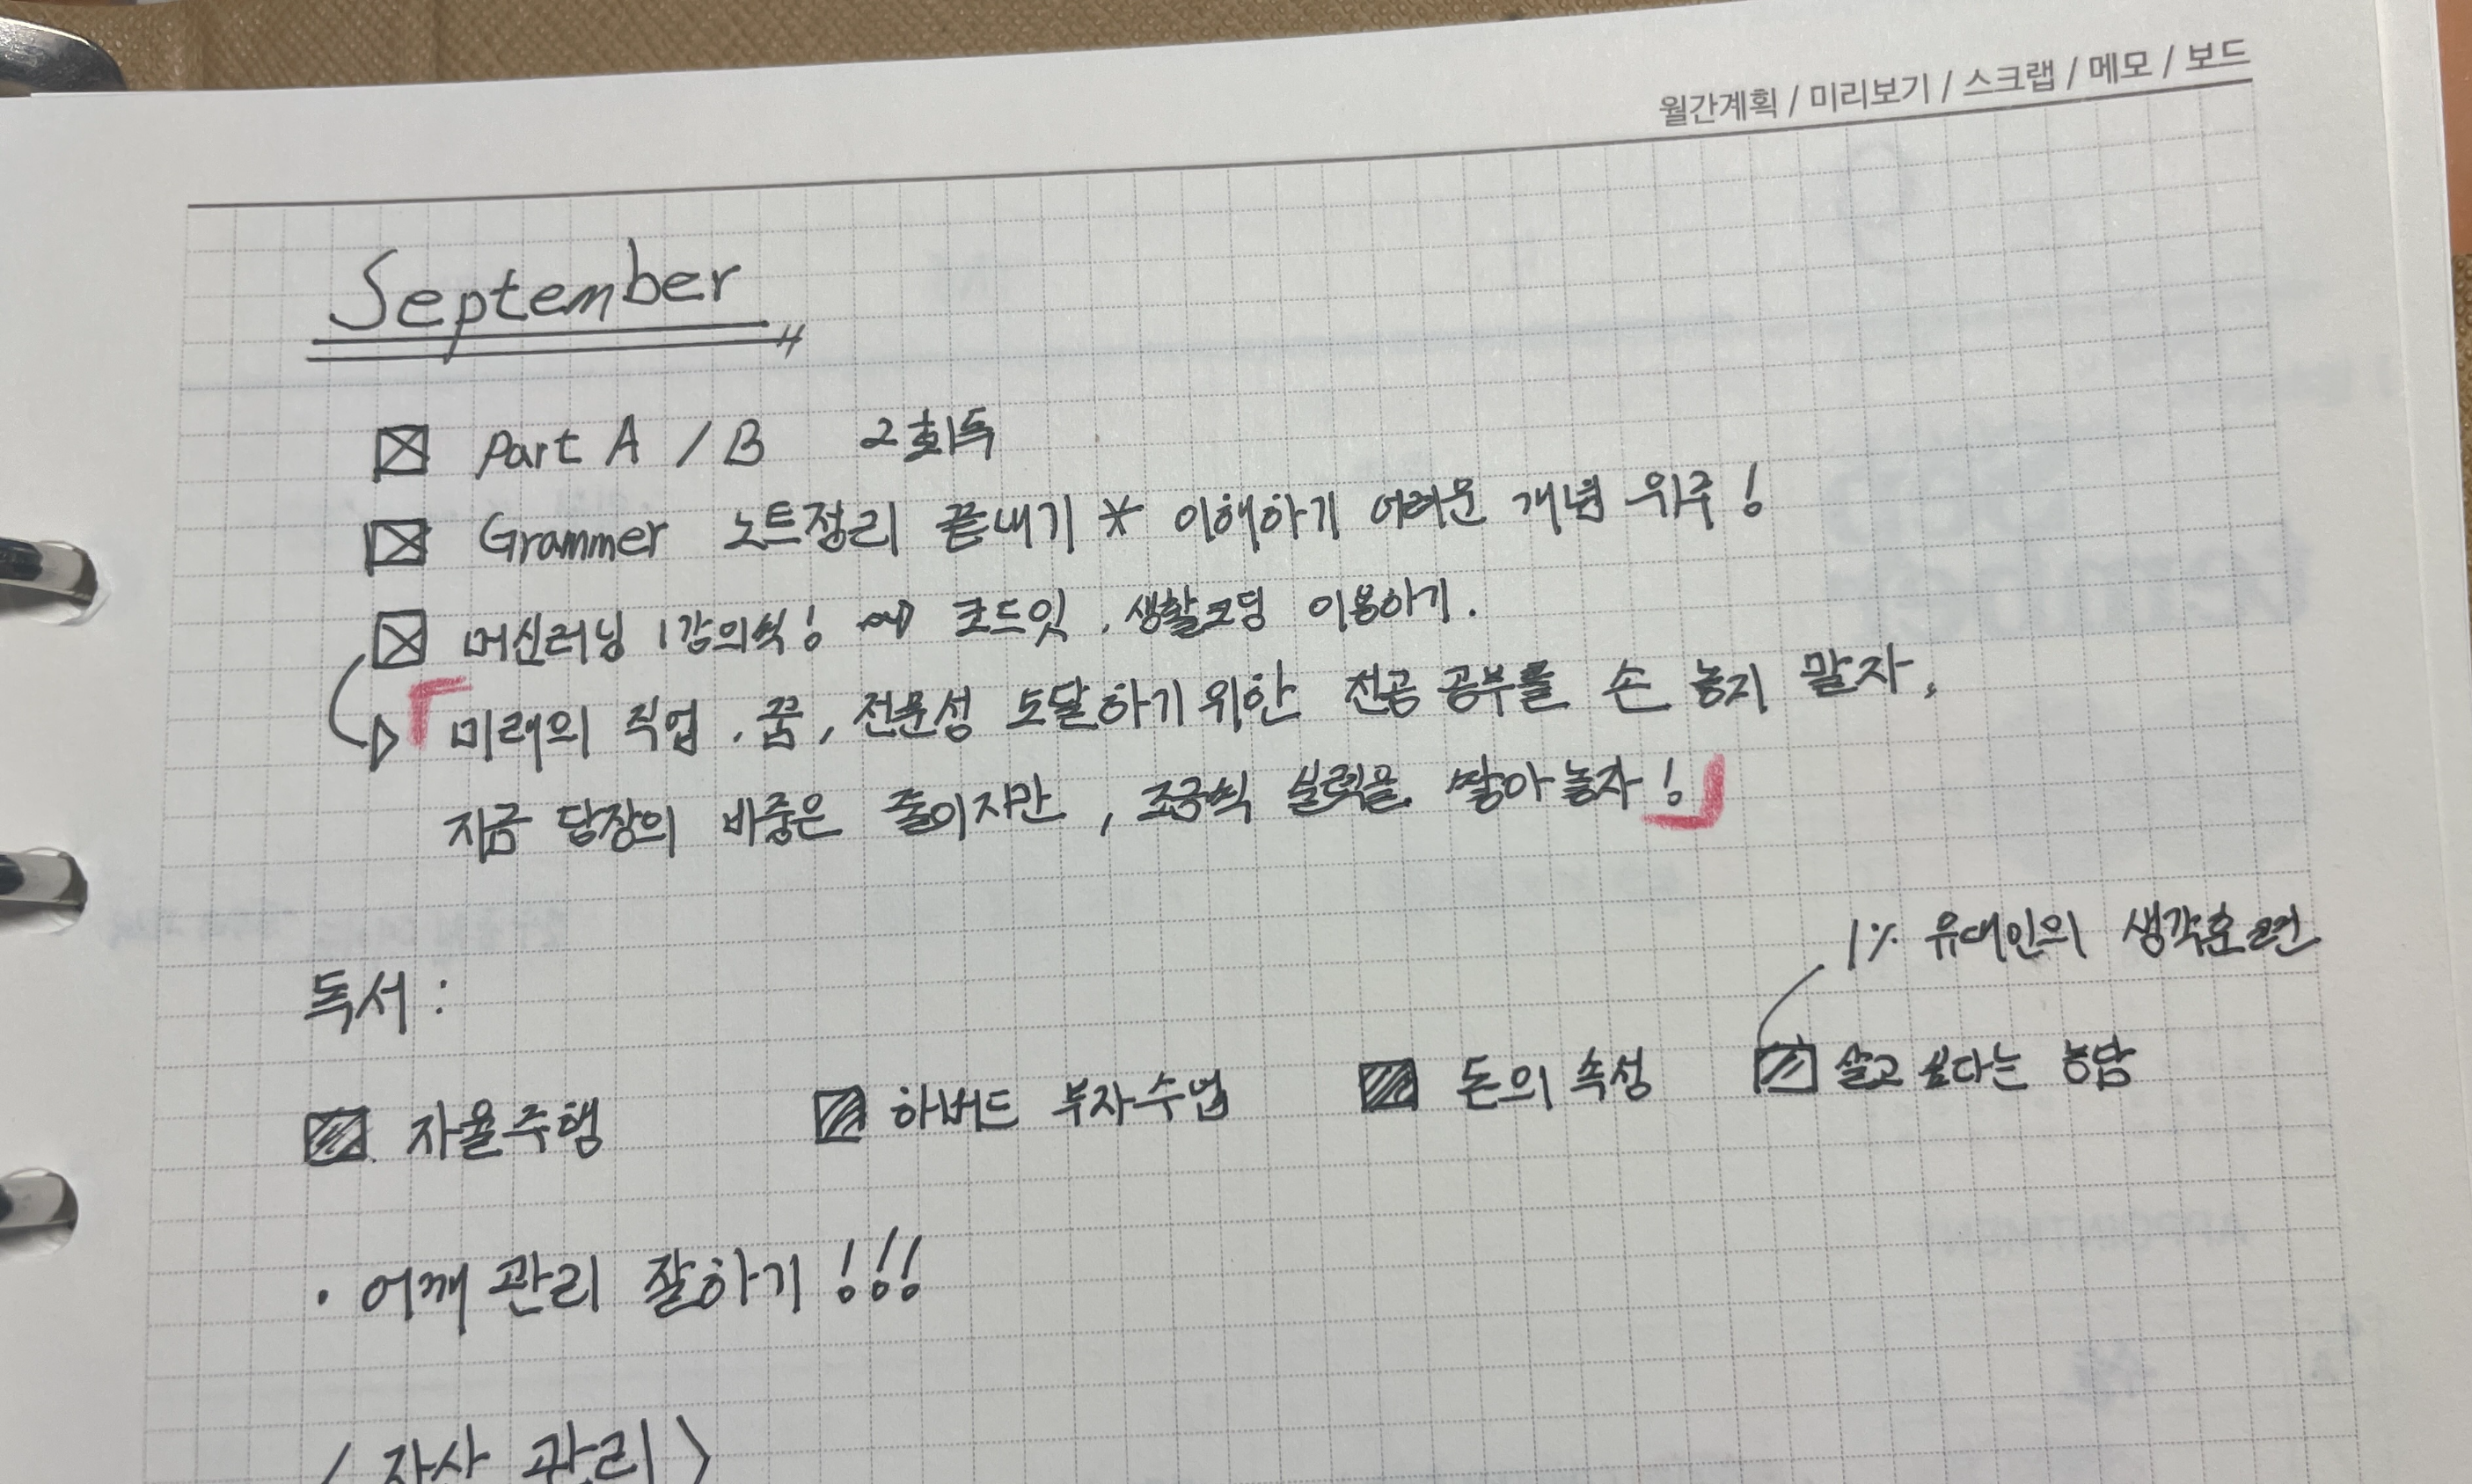 월간계획 / 미리보기 / 스크랩 / 메모 / 보드
September
Part A / B 2회독
Grammer 노트정리 끝내기 * 이해하기 어려운 개념 위주!
머신러닝 1강의씩! → 코드잇, 생활코딩 이용하기.
「미래의 직업, 꿈, 전문성 도달하기 위한 전공 공부를 손 놓지 말자,
지금 당장의 비중은 줄이지만, 조금씩 실력을 쌓아놓자!」
독서 :
1% 유대인의 생각훈련
자율주행 하버드 부자수업 돈의 속성 살고 싶다는 농담
· 어깨 관리 잘하기!!!
〈자산 관리〉